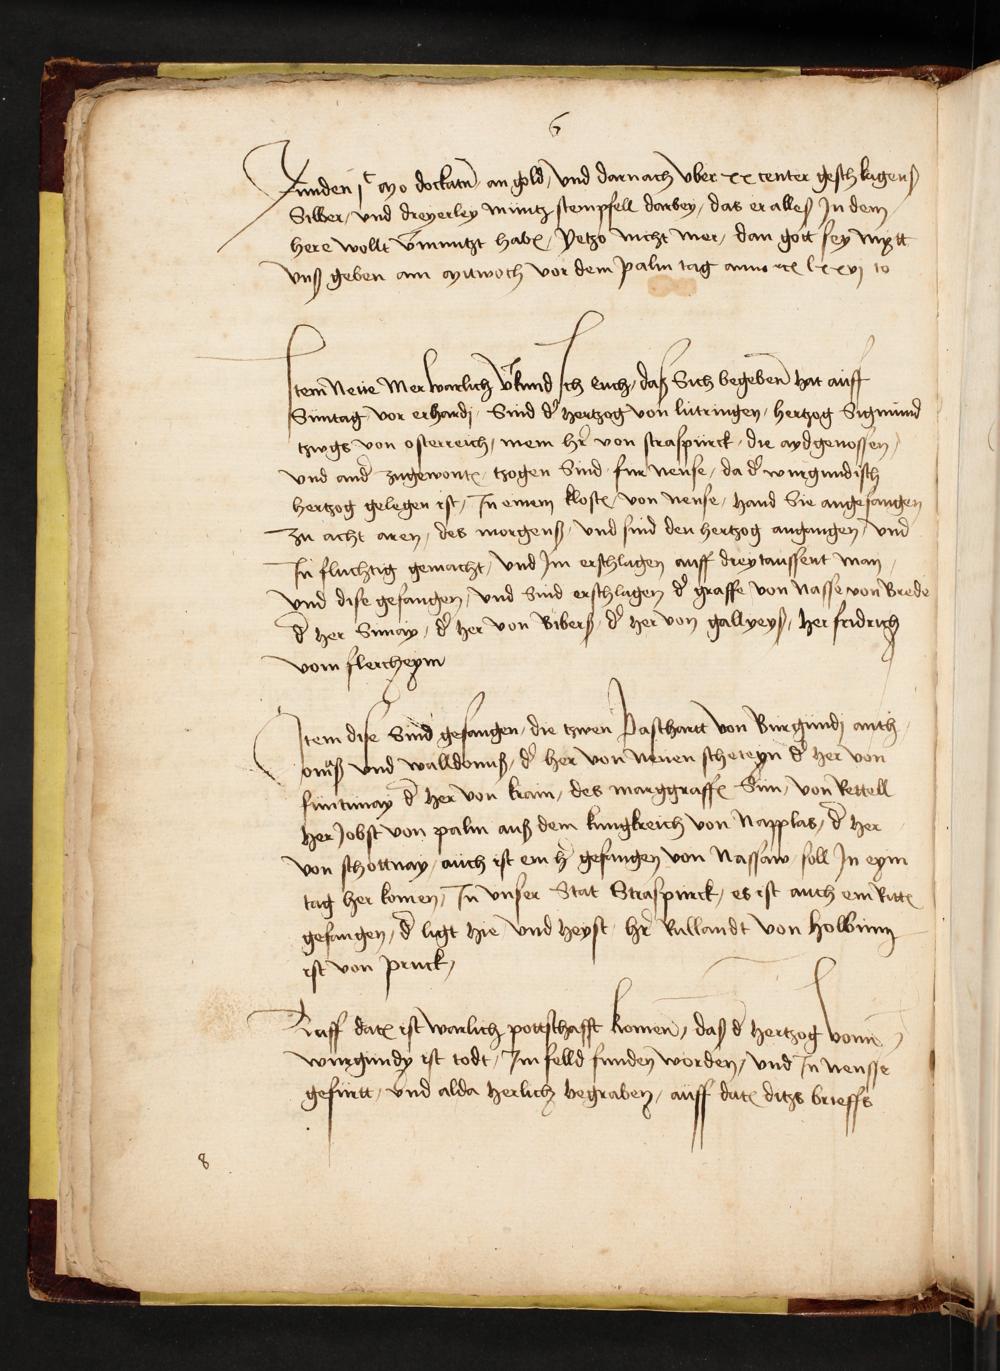 6
Funden jc mo dockatn an gold, und darnach über xx center geschlagens
Silber, und dreyerley müntz stempfell darbey, das er alles Jn dem
here wollt vermuntzt haben, Yetzo nicht mer, dan gott sey mytt
uns geben am mitwoch vor dem palm tag anno lxxvj to
Jtem Neüe Mer warlich verkund Jch euch, das Sich begeben hat auff
Suntag vor erhardj, Sind der hertzog von lütringen, hertzog Sigmund
von osterreich, mein hr von straspürck, die aydgenossen,
und ander zugewonten, tzogen Sind für nense, da der würgundisch
hertzog gelegen ist, Jn einem kloster von nense, hand Sie angefangen
zu acht aren, des morgens, und sind den hertzog angangen, und
Jn fluchtig gemacht, und Jm erschlagen auff dreytaussent man,
und dise gefangen, und Sind erschlagen der graffe von Nasse von Brede
der her Simay, der her von Bibers, der her von gallyeys, her fridrich
vom flercheym
Jtem dise Sind gefangen, die tzwen Pasthartt von Bürgundj anth
onius und walldonius, der her von neuen scheteyn der her von
füntimay der her von krain, des marggraffen Sün, von Rettell
her Jobst von palm aus dem kungkreich von Napplas, der her
von schottnay, auch ist ein her gefangen von Nassaw, soll Jn eym
tag her komen, Jn unser Stat Straspürck, es ist auch ein Ritter
gefangen, der ligt hie, und heyst hr Rullandt von Holbinn
ist von pruck,
Auff daten ist warlich pottschafft komen, das der hertzog vonn
würgündy ist todt, Jm felld funden worden, und Jn nensse
gefürtt, und alda herlich begraben, auff daten ditzs brieffs
8